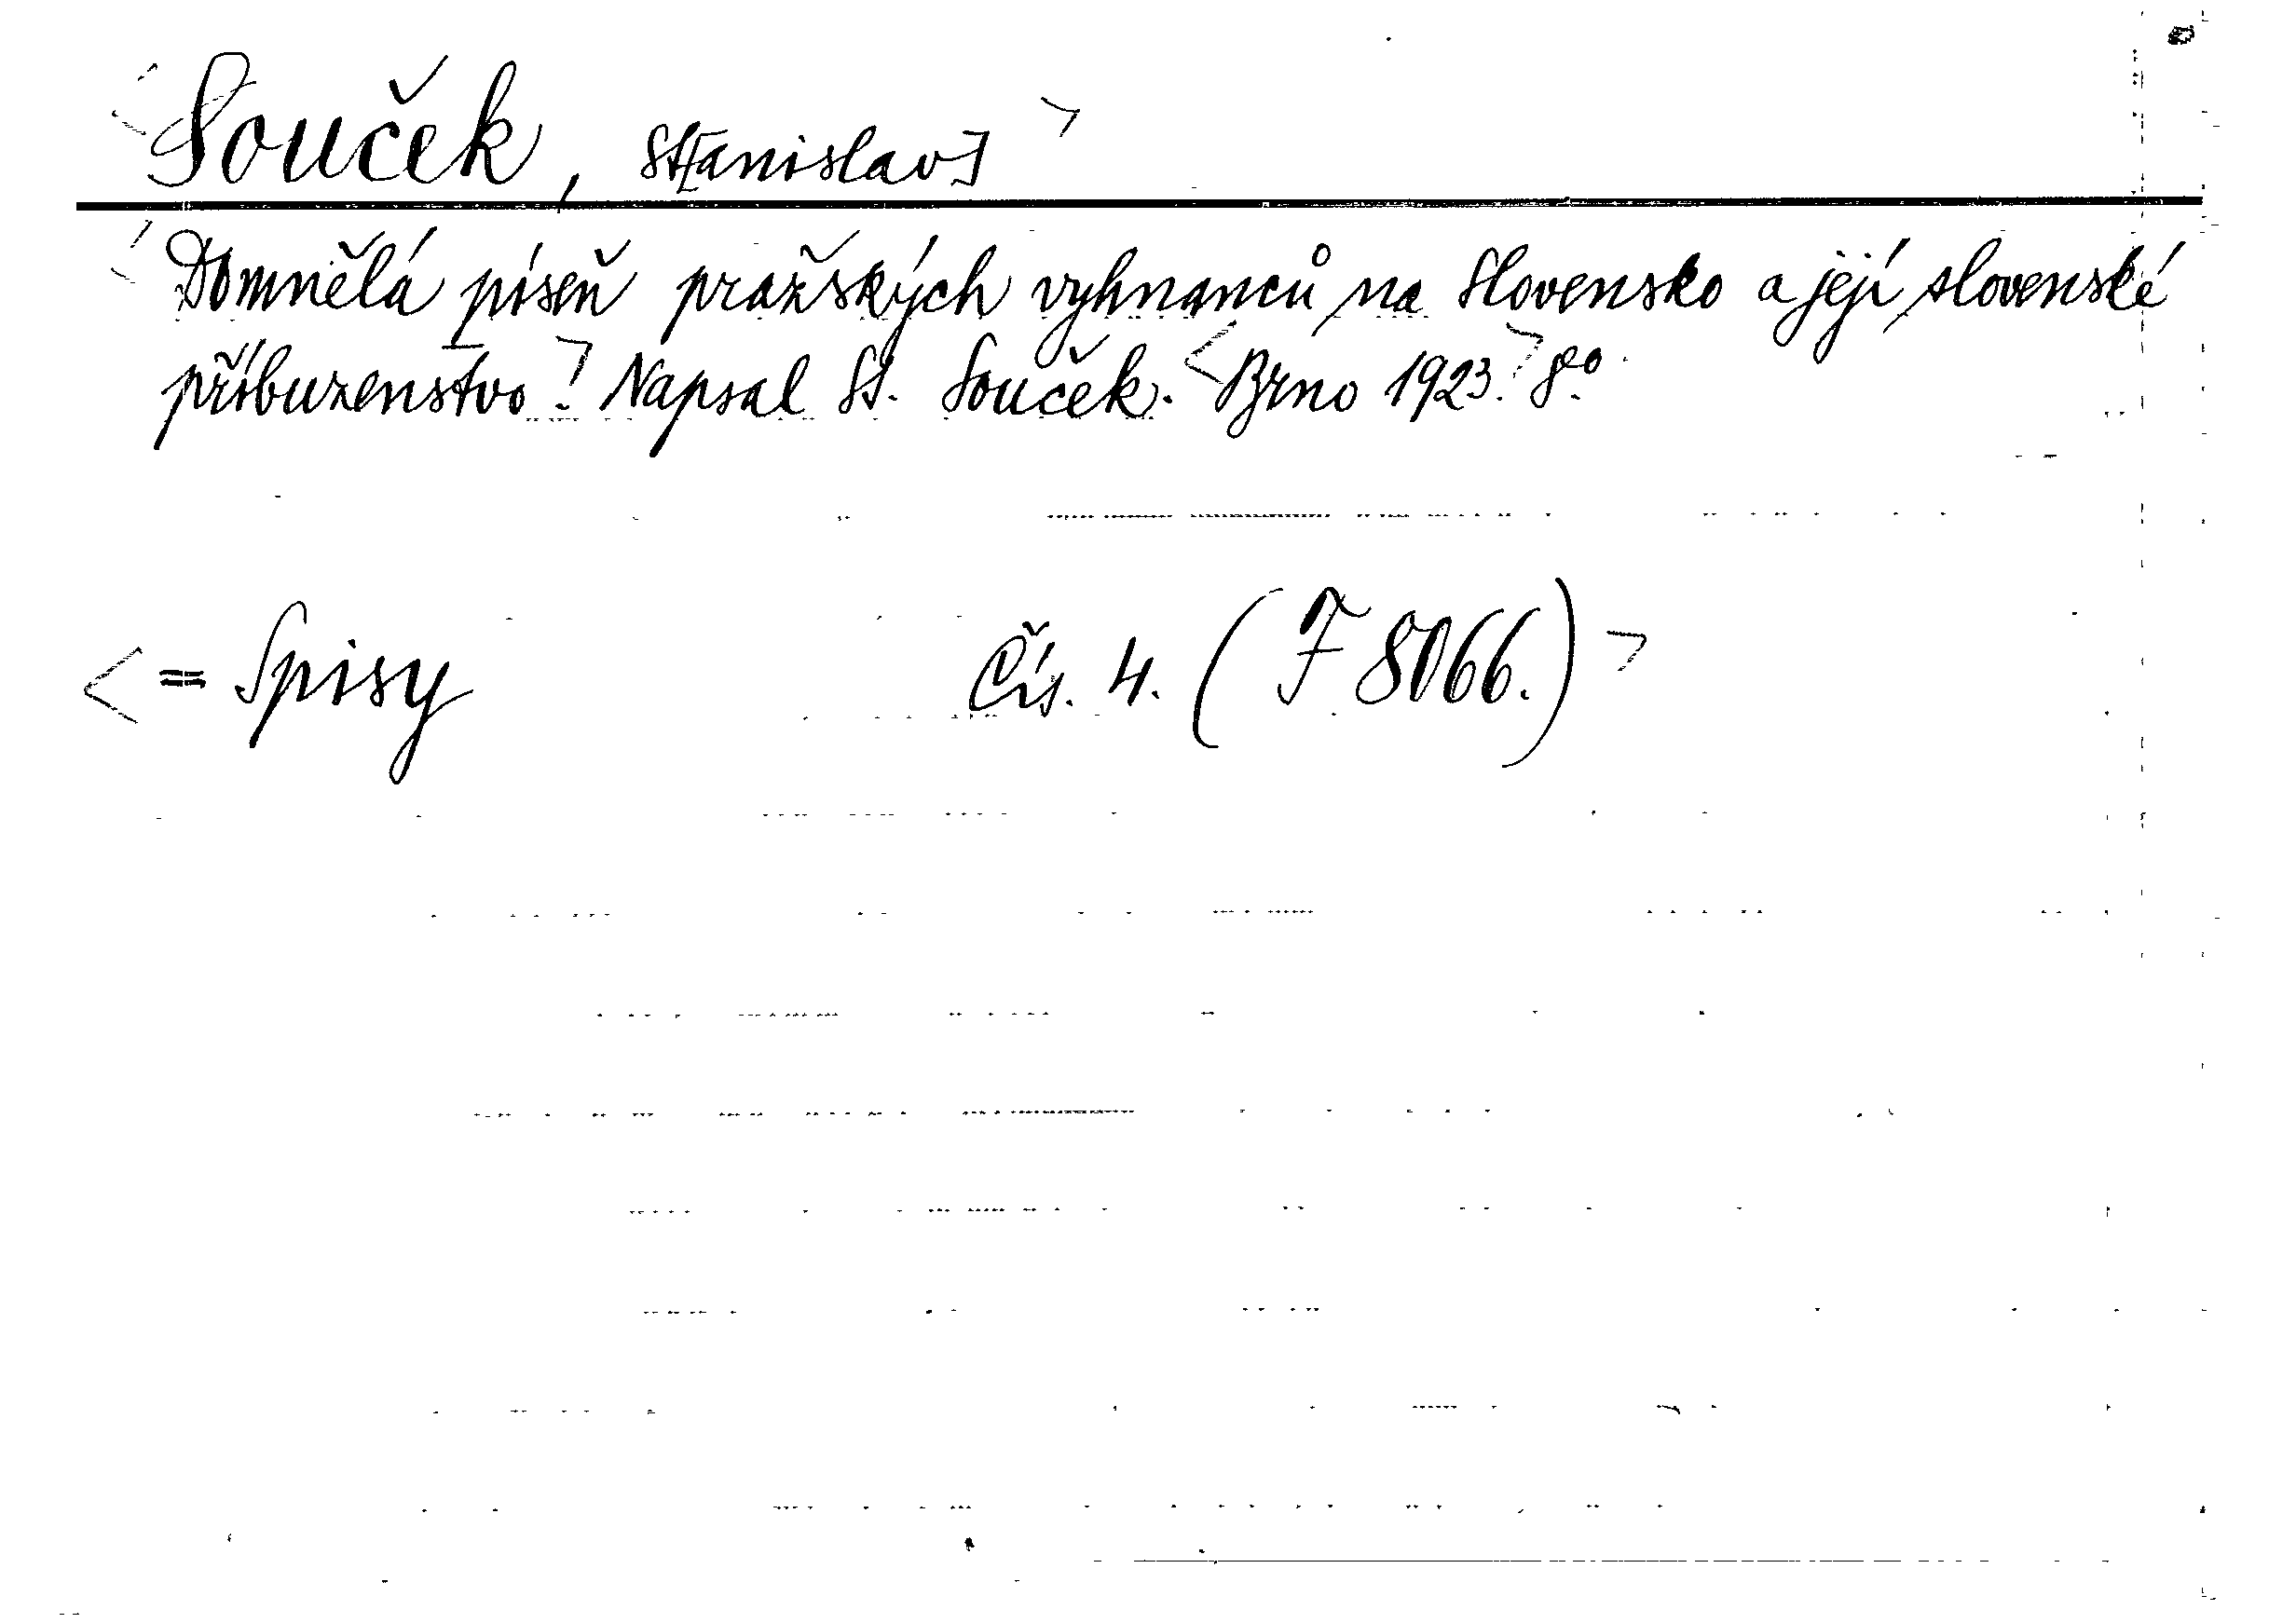 <Souček, St[anislav]>
<Domnělá píseň pražských vyhnanců na Slovensko a její slovenské
příbuzenstvo.> Napsal St. Souček. <Brno 1923.> 8º.
<= Spisy Čís. 4. (F 8066.)>